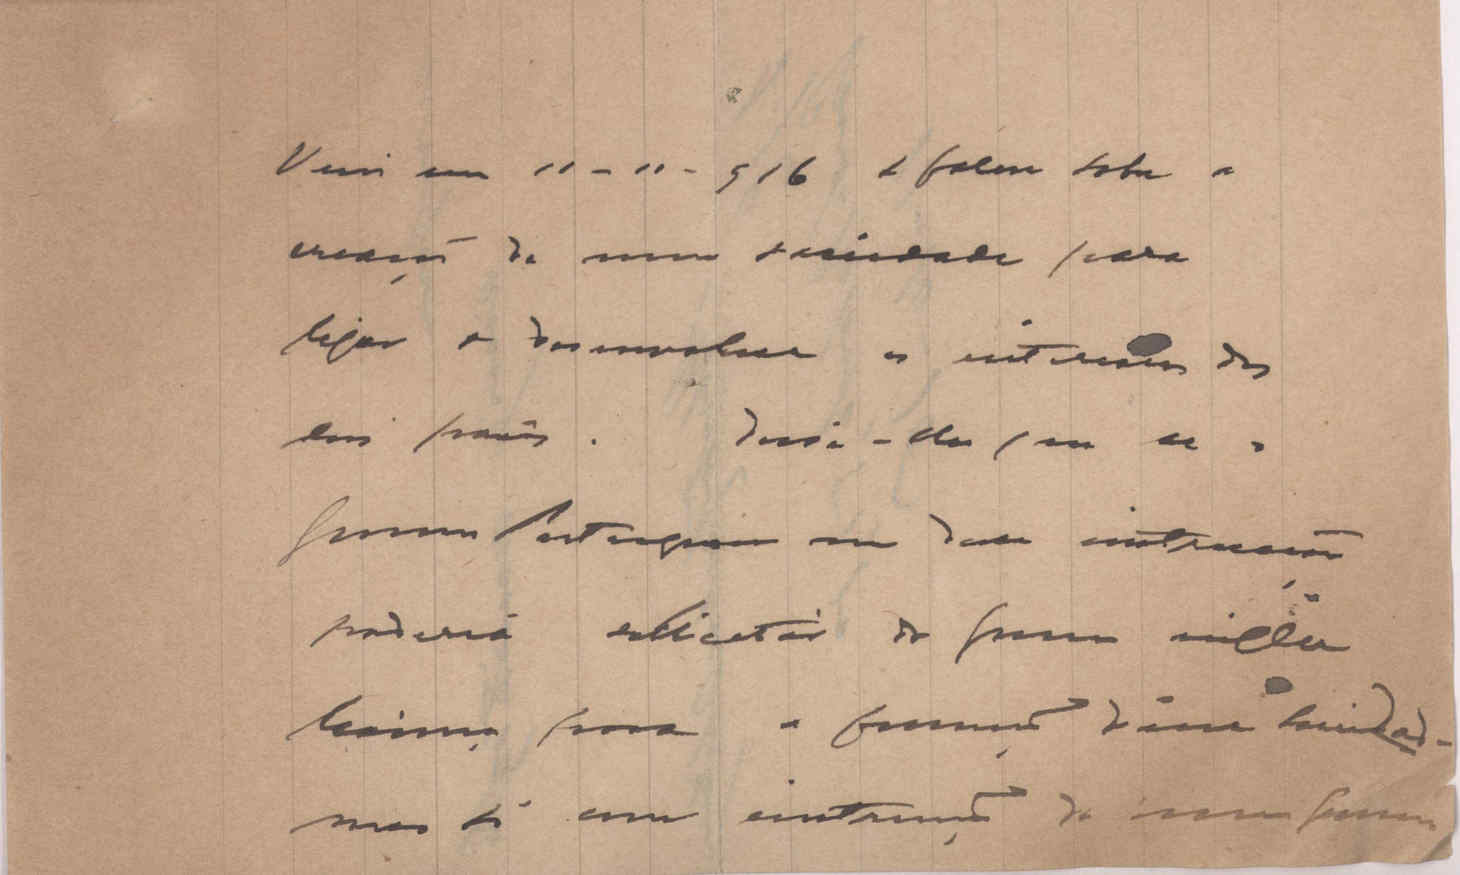 Veiu em 11-11-916 e falou sobre a
creação de uma sociedade para
ligar e desenvolver os interesses dos
dois paises. Disse-lhe que se o
Governo Portuguez me desse instrucções
poderia solicitar do Governo inglez
licença para a formação d'essa sociedade
mas só com instrucção do nosso Governo